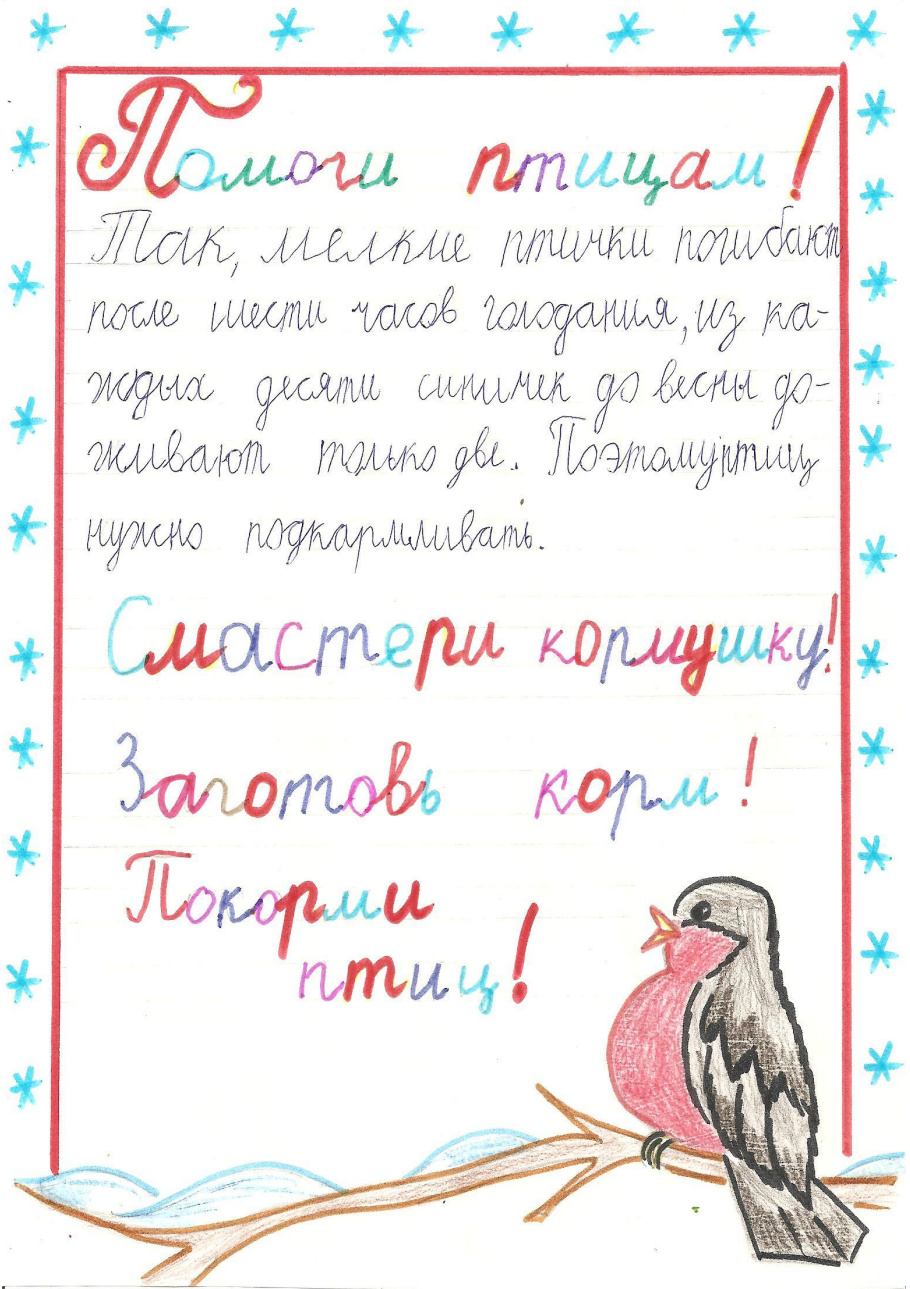 Помоги птицам!
Так, мелкие птички погибают
после шести часов голодания, из ка-
ждых десяти синичек до весны до-
живают только две. Поэтому птиц
нужно подкармливать.
Смастери кормушку!
Заготовь корм!
Покорми
птиц!